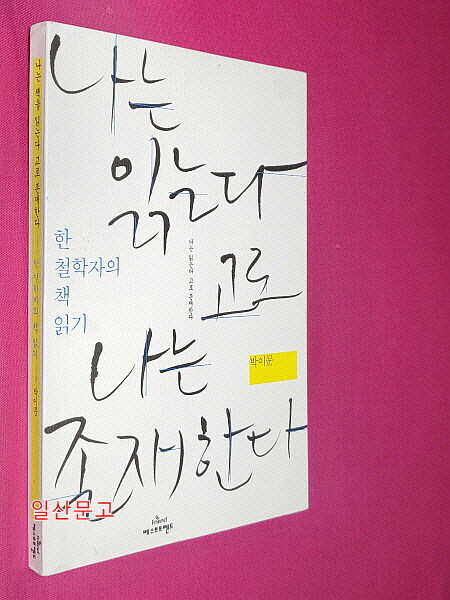 나는
읽는다
고로
나는
존재한다
한
철학자의
책
읽기
나는 읽는다 고로 존재한다
박이문
Friend
베스트프렌드
나는 책을 읽는다 고로 존재한다
한 철학자의 책 읽기
박이문
일산문고